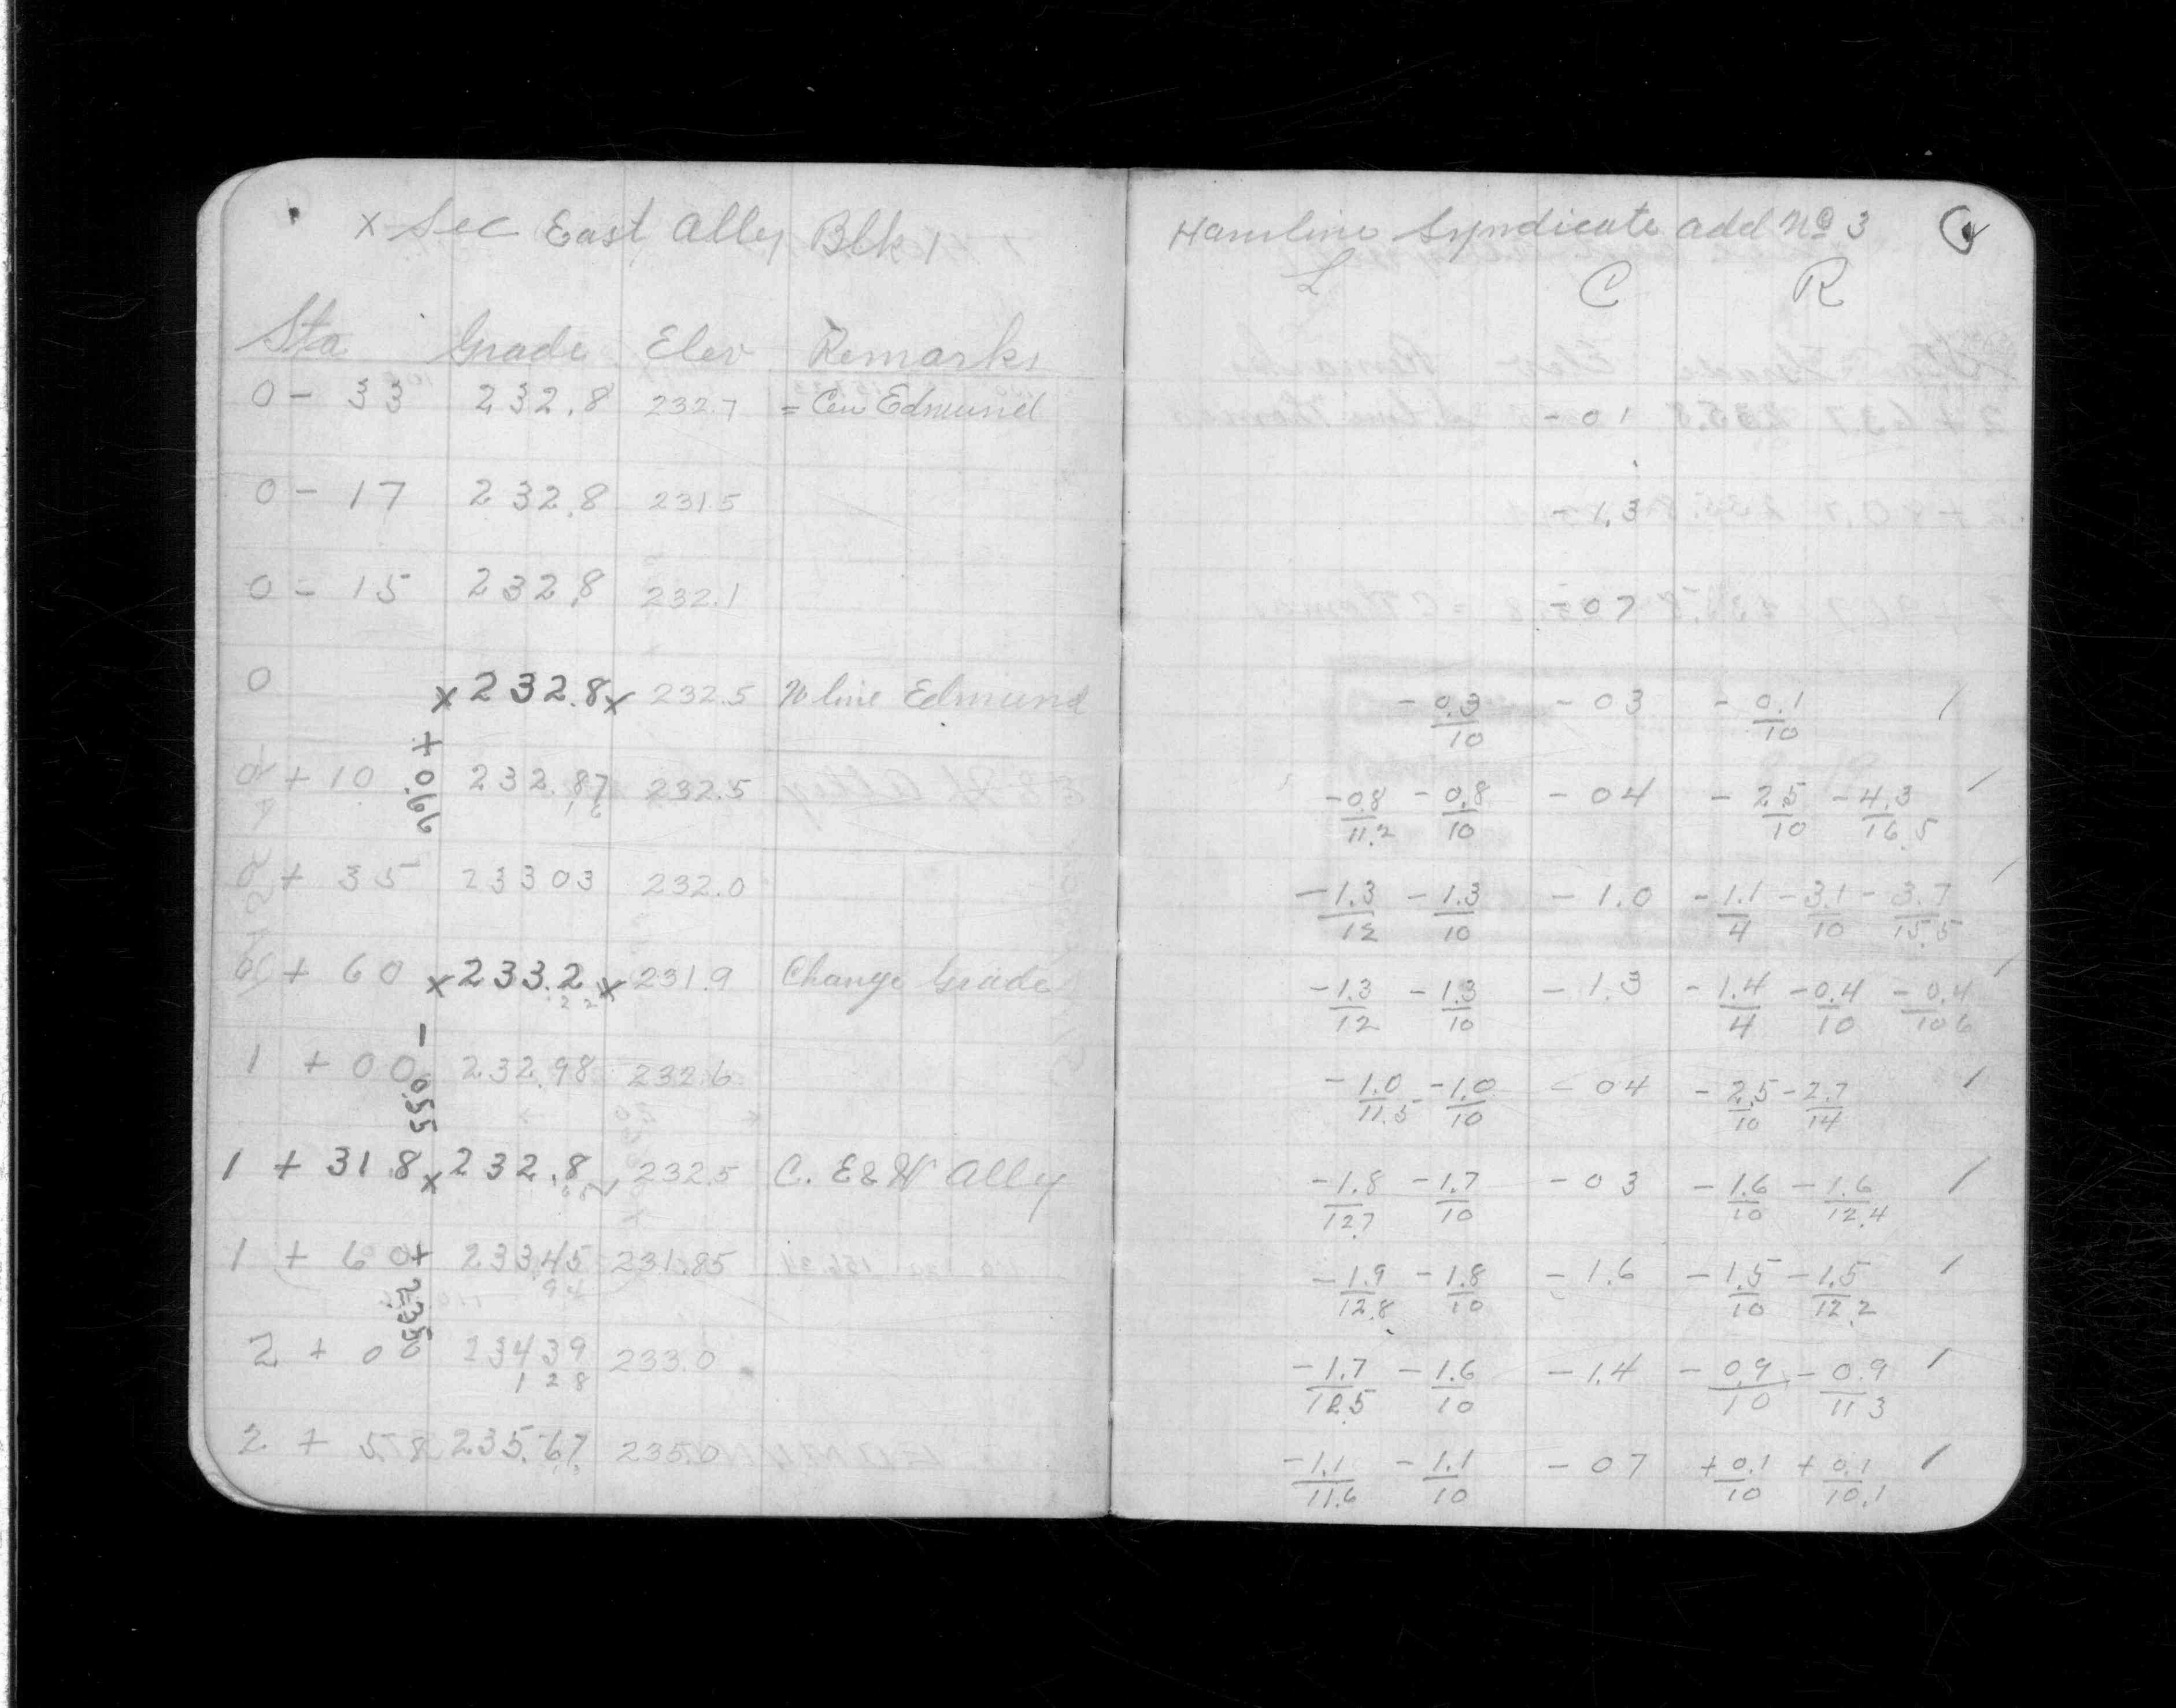 x Sec East Alley Blk 1
Sta Grade Elev Remarks
0 - 33 232.8 232.7 = Cen Edmund
0 - 17 232.8 231.5
0 - 15 232.8 232.1
0 x 232.8 x 232.5 N line Edmund
+ 0.66
0 + 10 232.87 232.5
0 + 35 233 03 232.0
0 + 60 x 233.2 x 231.9 Change Grade
- 0.55
1 + 00 232.98 232.6
1 + 31.8 x 232.8 232.5 C. E & W Alley
1 + 60 233.45 231.85
+ 2.330
2 + 00 234 39 233.0
1 2 8
2 + 57.8 235.67 235.0
Hamline Syndicate add No 3
L C R
- 0 1
- 1.3
- 0 7
- 0.3/10 - 0 3 - 0.1/10 /
- 0.8/11.2 - 0.8/10 - 0 4 - 2.5/10 - 4.3/16.5 /
- 1.3/12 - 1.3/10 - 1.0 - 1.1/4 - 3.1/10 - 3.7/15.5 /
- 1.3/12 - 1.3/10 - 1.3 - 1.4/4 - 0.4/10 - 0.4/10 6 /
- 1.0/11.5 - 1.0/10 - 0 4 - 2.5/10 - 2.7/14 /
- 1.8/12.7 - 1.7/10 - 0 3 - 1.6/10 - 1.6/12.4 /
- 1.9/12.8 - 1.8/10 - 1.6 - 1.5/10 - 1.5/12.2 /
- 1.7/12.5 - 1.6/10 - 1.4 - 0.9/10 - 0.9/11 3 /
- 1.1/11.6 - 1.1/10 - 0 7 + 0.1/10 + 0.1/10.1 /